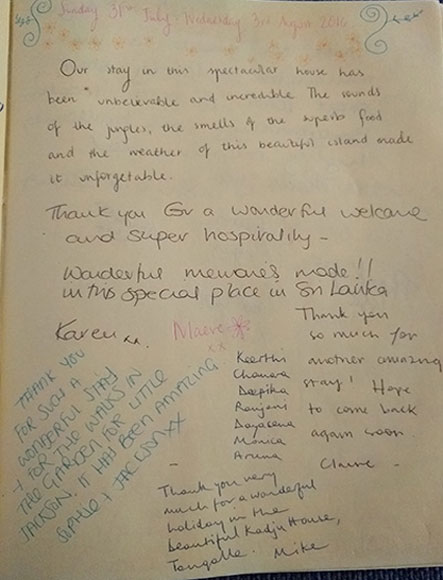 Sunday 31st July - Wednesday 3rd August 2016
Our stay in this spectacular house has
been unbelievable and incredible The sounds
of the jungles, the smells of the superb food
and the weather of this beautiful island made
it unforgetable.
Thank you for a wonderful welcome
and super hospitality -
Wonderful memories made!!
in this special place in Sri Lanka
Karen xx.
Maeve
xx
Thank you
so much for
another amazing
stay! Hope
to come back
again soon
Claire -
Keerthi
Chanera
Deepika
Ranjani
Dayasena
Monica
Aruna
THANK YOU
FOR SUCH A
WONDERFUL STAY
+ FOR THE WALKS IN
THE GARDEN FOR LITTLE
JACKSON. IT HAS BEEN AMAZING
SOPHIE + JACKSON XX
Thank you very
much for a wonderful
holiday in the
beautiful Kadju House,
Tangalle. Mike